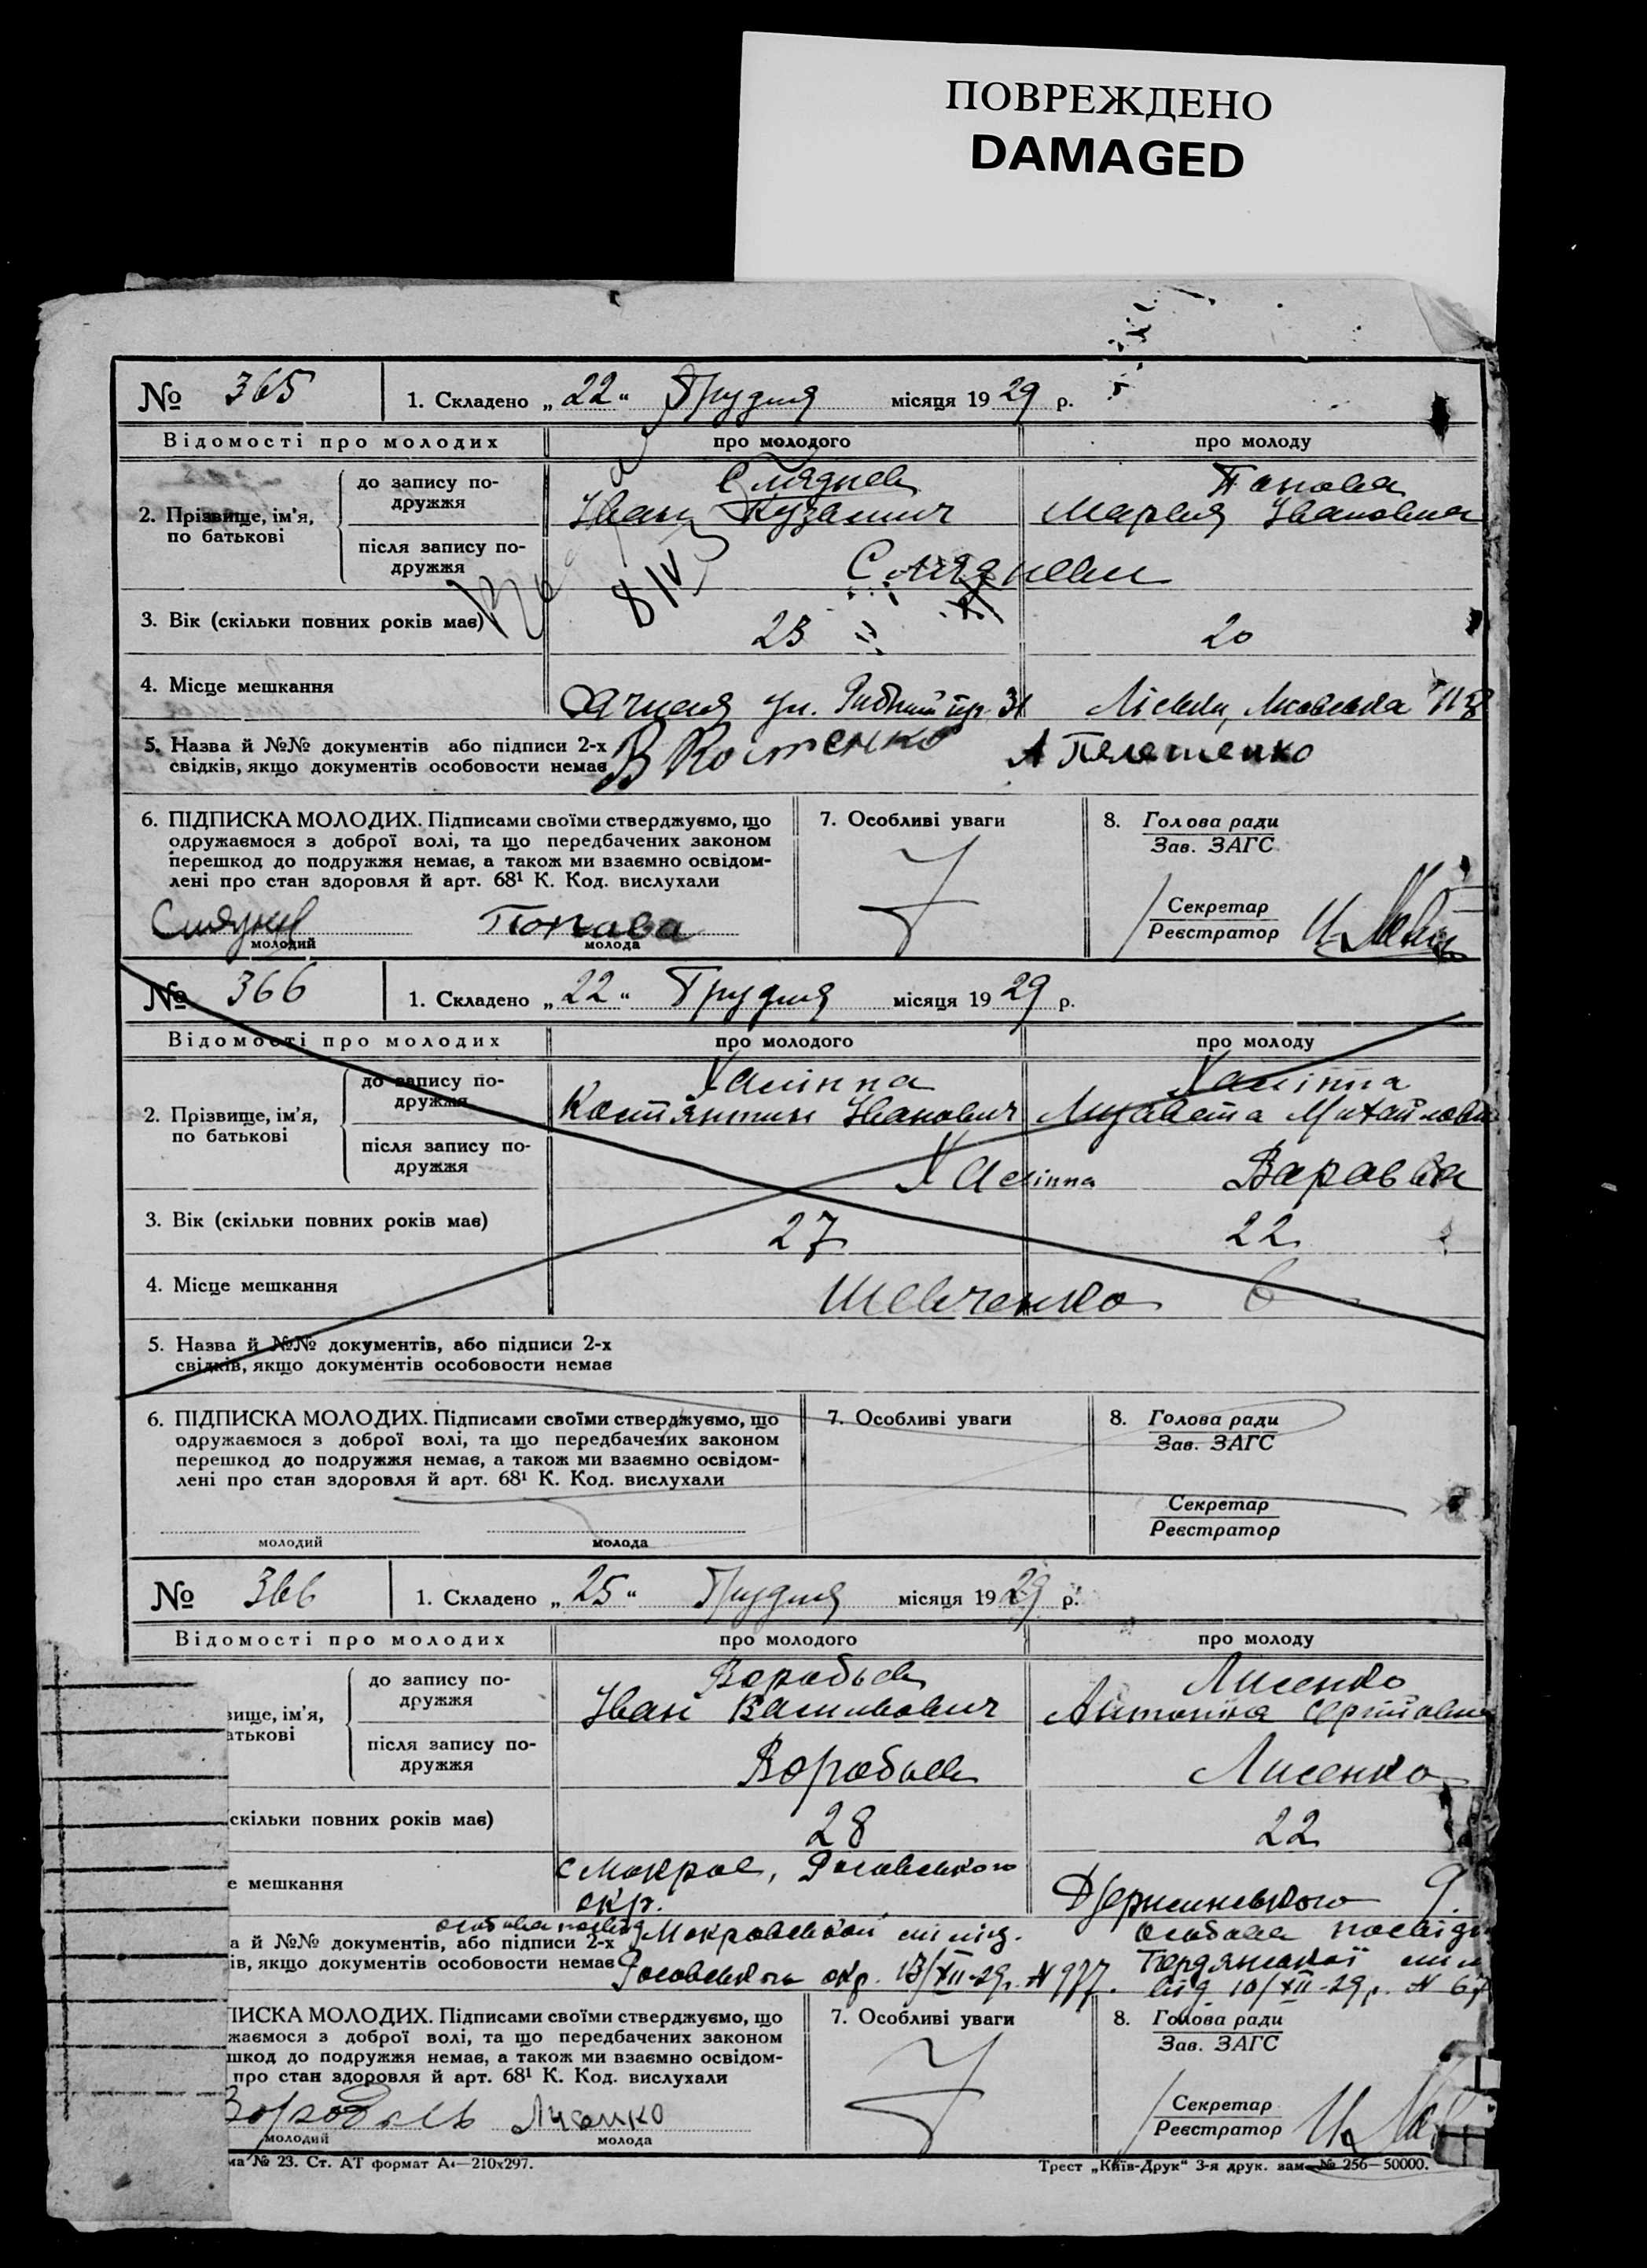 ПОВРЕЖДЕНО
DAMAGED
№ 365 1. Складено „ 22 “ Грудня місяця 19 29 р.
Відомості про молодих про молодого про молоду
2. Прізвище, ім'я, по батькові
до запису подружжя
Іван Кузьмич
Попова
Мария Івановна
після запису подружжя
3. Вік (скільки повних років має) 23 20
4. Місце мешкання
ул. 31
5. Назва й №№ документів або підписи 2-х
свідків, якщо документів особовости немає
В Костенко
6. ПІДПИСКА МОЛОДИХ. Підписами своїми стверджуємо, що
одружаємося з доброї волі, та що передбачених законом
перешкод до подружжя немає, а також ми взаємно освідом-
лені про стан здоровля й арт. 68¹ К. Код. вислухали
Попава
молодий молода
7. Особливі уваги
8. Голова ради
Зав. ЗАГС
Секретар
Реєстратор
№ 366 1. Складено „ 22 “ Грудня місяця 19 29 р.
Відомості про молодих про молодого про молоду
2. Прізвище, ім'я,
по батькові
до запису по-
дружжя
Костянтин Іванович Лизавета Михайловн
після запису по-
дружжя
Варавва
3. Вік (скільки повних років має) 27 22
4. Місце мешкання
Шевченко 6
5. Назва й №№ документів, або підписи 2-х
свідків, якщо документів особовости немає
6. ПІДПИСКА МОЛОДИХ. Підписами своїми стверджуємо, що
одружаємося з доброї волі, та що передбачених законом
перешкод до подружжя немає, а також ми взаємно освідом-
лені про стан здоровля й арт. 68¹ К. Код. вислухали
молодий молода
7. Особливі уваги
8. Голова ради
Зав. ЗАГС
Секретар
Реєстратор
№ 366 1. Складено „ 25 “ Грудня місяця 19 29 р.
Відомості про молодих про молодого про молоду
вище, ім'я,
атькові
до запису по-
дружжя
Воробьев
Іван Васильович
Лисенко
Антоніна Сергіївна
після запису по-
дружжя
Воробьев Лисенко
скільки повних років має) 28 22
е мешкання
с Мокрое,
окр.
Дзержинського 9
а й №№ документів, або підписи 2-х
ів, якщо документів особовости немає
Мокровської міліц.
окр. 13/XII-29р. N 977.
Особова посвідч
від 10/XII-29р. N 67
ПИСКА МОЛОДИХ. Підписами своїми стверджуємо, що
жаємося з доброї волі, та що передбачених законом
шкод до подружжя немає, а також ми взаємно освідом-
про стан здоровля й арт. 68¹ К. Код. вислухали
Лисенко
молодий молода
7. Особливі уваги
8. Голова ради
Зав. ЗАГС
Секретар
Реєстратор
ма № 23. Ст. АТ формат А₄—210х297.
Трест „Київ-Друк“ 3-я друк. зам. № 256—50000.